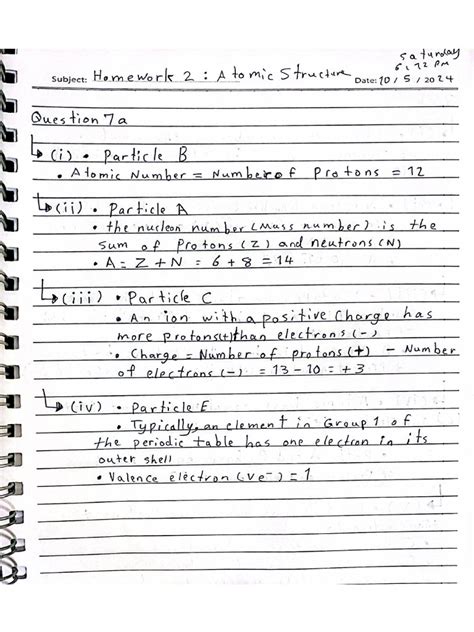 Saturday
6:12 PM
Subject: Homework 2 : Atomic Structure Date: 10 / 5 / 2024
Question 7a
(i) • Particle B
• Atomic Number = Number of Protons = 12
(ii) • Particle A
• the nucleon number (Mass number) is the
sum of Protons (Z) and neutrons (N)
• A = Z + N = 6 + 8 = 14
(iii) • Particle C
• An ion with a positive Charge has
more protons(+) than electrons (-)
• Charge = Number of protons (+) - Number
of electrons (-) = 13 - 10 = +3
(iv) • Particle E
• Typically, an element in Group 1 of
the periodic table has one electron in its
outer shell
• Valence electron (ve⁻) = 1